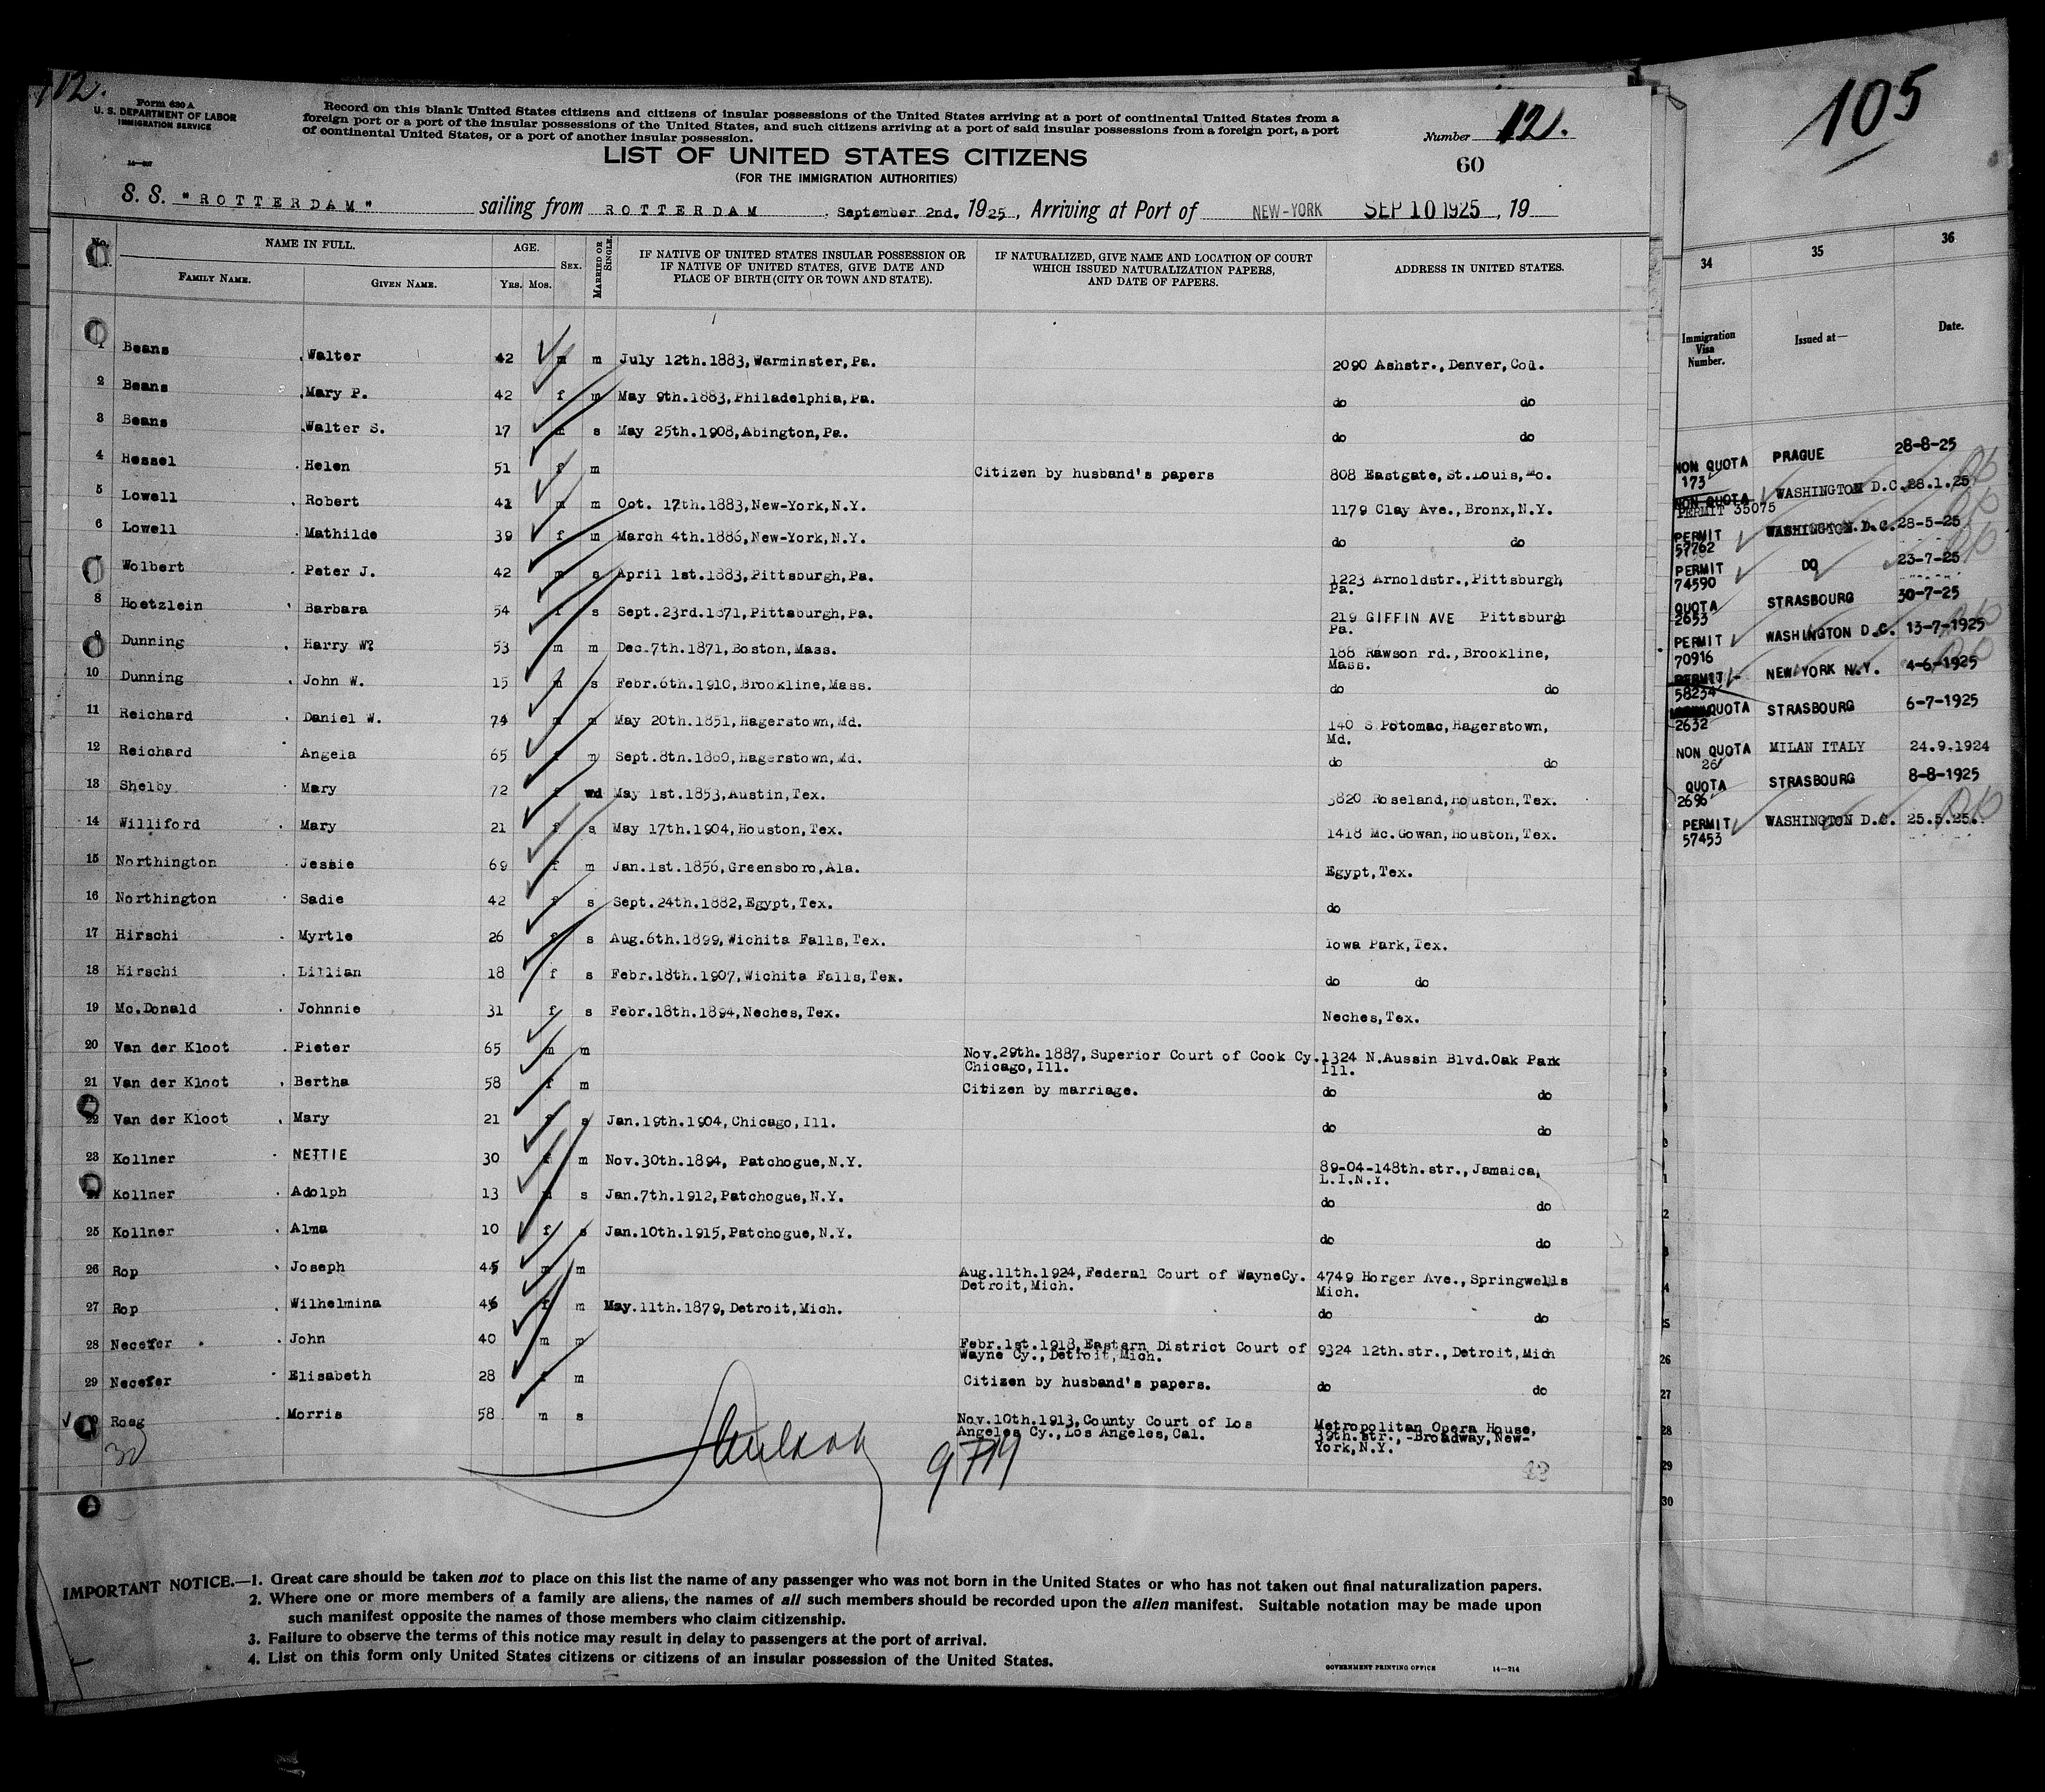 112.
Form 630 A
U. S. DEPARTMENT OF LABOR
IMMIGRATION SERVICE
Record on this blank United States citizens and citizens of insular possessions of the United States arriving at a port of continental United States from a
foreign port or a port of the insular possessions of the United States, and such citizens arriving at a port of said insular possessions from a foreign port, a port
of continental United States, or a port of another insular possession.
Number 12.
LIST OF UNITED STATES CITIZENS
(FOR THE IMMIGRATION AUTHORITIES)
60
S. S. "ROTTERDAM" sailing from ROTTERDAM . September 2nd. 1925, Arriving at Port of NEW-YORK SEP 10 1925, 19
No. NAME IN FULL. AGE. SEX. MARRIED OR SINGLE. IF NATIVE OF UNITED STATES INSULAR POSSESSION OR IF NATIVE OF UNITED STATES, GIVE DATE AND PLACE OF BIRTH (CITY OR TOWN AND STATE). IF NATURALIZED, GIVE NAME AND LOCATION OF COURT WHICH ISSUED NATURALIZATION PAPERS, AND DATE OF PAPERS. ADDRESS IN UNITED STATES.
FAMILY NAME. GIVEN NAME. YRS. MOS.
1 Beans Walter 42 m m July 12th.1883, Warminster, Pa. 2090 Ashstr., Denver, Col.
2 Beans Mary P. 42 f m May 9th.1883, Philadelphia, Pa. do do
3 Beans Walter S. 17 m s May 25th.1908, Abington, Pa. do do
4 Hessel Helen 51 f m Citizen by husband's papers 808 Eastgate, St.Louis, Mo.
5 Lowell Robert 41 m m Oct. 17th.1883, New-York, N.Y. 1179 Clay Ave., Bronx, N.Y.
6 Lowell Mathilde 39 f m March 4th.1886, New-York, N.Y. do do
7 Wolbert Peter J. 42 m s April 1st.1883, Pittsburgh, Pa. 1223 Arnoldstr., Pittsburgh
Pa.
8 Hoetzlein Barbara 54 f s Sept.23rd.1871, Pittsburgh, Pa. 219 GIFFIN AVE Pittsburgh
Pa.
9 Dunning Harry W? 53 m m Dec.7th.1871, Boston, Mass. 188 Rawson rd., Brookline,
Mass.
10 Dunning John W. 15 m s Febr.6th.1910, Brookline, Mass. do do
11 Reichard Daniel W. 74 m m May 20th.1851, Hagerstown, Md. 140 S Potomac, Hagerstown,
Md.
12 Reichard Angela 65 f m Sept.8th.1860, Hagerstown, Md. do do
13 Shelby Mary 72 f wd May 1st.1853, Austin, Tex. 3820 Roseland, Houston, Tex.
14 Williford Mary 21 f s May 17th.1904, Houston, Tex. 1418 Mc.Gowan, Houston, Tex.
15 Northington Jessie 69 f m Jan.1st.1856, Greensboro, Ala. Egypt, Tex.
16 Northington Sadie 42 f s Sept.24th.1882, Egypt, Tex. do
17 Hirschi Myrtle 26 f s Aug.6th.1899, Wichita Falls, Tex. Iowa Park, Tex.
18 Hirschi Lillian 18 f s Febr.18th.1907, Wichita Falls, Tex. do do
19 Mc.Donald Johnnie 31 f s Febr.18th.1894, Neches, Tex. Neches, Tex.
20 Van der Kloot Pieter 65 m m Nov.29th.1887, Superior Court of Cook Cy. 1324 N.Aussin Blvd.Oak Park
Chicago, Ill. Ill.
21 Van der Kloot Bertha 58 f m Citizen by marriage. do do
22 Van der Kloot Mary 21 f s Jan.19th.1904, Chicago, Ill. do do
23 Kollner NETTIE 30 f m Nov.30th.1894, Patchogue, N.Y. 89-04-148th.str., Jamaica,
L.I.N.Y.
Kollner Adolph 13 m s Jan.7th.1912, Patchogue, N.Y. do do
25 Kollner Alma 10 f s Jan.10th.1915, Patchogue, N.Y. do do
26 Rop Joseph 45 m m Aug.11th.1924, Federal Court of WayneCy. 4749 Horger Ave., Springwells
Detroit, Mich. Mich.
27 Rop Wilhelmina 46 f m May.11th.1879, Detroit, Mich. do do
28 Necefer John 40 m m Febr.1st.1918, Eastern District Court of 9324 12th.str., Detroit, Mich
Wayne Cy., Detroit, Mich.
29 Necefer Elisabeth 28 f m Citizen by husband's papers. do do
Roeg Morris 58 m s Nov.10th.1913, County Court of Los Metropolitan Opera House,
Angeles Cy., Los Angeles, Cal. 39th.str., -Broadway, New-
York, N.Y.
30
IMPORTANT NOTICE.—1. Great care should be taken not to place on this list the name of any passenger who was not born in the United States or who has not taken out final naturalization papers.
2. Where one or more members of a family are aliens, the names of all such members should be recorded upon the alien manifest. Suitable notation may be made upon
such manifest opposite the names of those members who claim citizenship.
3. Failure to observe the terms of this notice may result in delay to passengers at the port of arrival.
4. List on this form only United States citizens or citizens of an insular possession of the United States.
GOVERNMENT PRINTING OFFICE 14—214
105
34 35 36
Immigration Visa Number. Issued at— Date.
NON QUOTA PRAGUE 28-8-25
173
NON QUOTA WASHINGTON D.C. 28.1.25
PERMIT 35075
PERMIT WASHINGTON D.C. 28-5-25
57762
PERMIT DO 23-7-25
74590
QUOTA STRASBOURG 30-7-25
2653
PERMIT WASHINGTON D.C. 13-7-1925
70916
PERMIT NEW YORK N.Y. 4-6-1925
58234
QUOTA STRASBOURG 6-7-1925
2632
NON QUOTA MILAN ITALY 24.9.1924
26
QUOTA STRASBOURG 8-8-1925
2696
PERMIT WASHINGTON D.C. 25.5.25.
57453
26
27
28
29
30